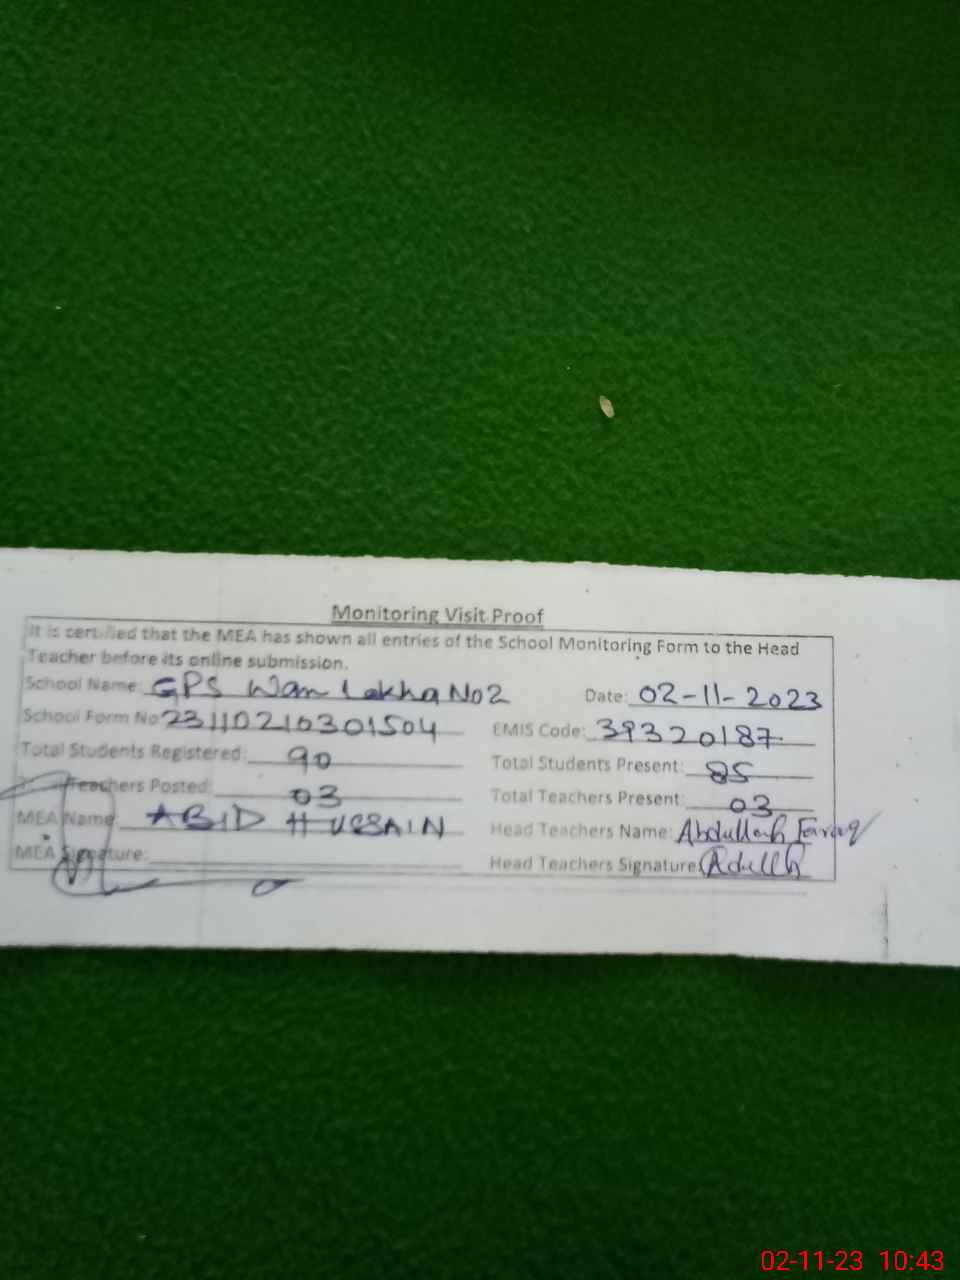 Monitoring Visit Proof
It is certified that the MEA has shown all entries of the School Monitoring Form to the Head
Teacher before its online submission.
School Name: GPS Wan Lakha No2 Date: 02-11-2023
School Form No 23110210301504 EMIS Code: 39320187
Total Students Registered: 90 Total Students Present: 85
Teachers Posted: 03 Total Teachers Present: 03
MEA Name: ABID HUSSAIN Head Teachers Name: Abdullah Faraq
MEA Signature: Head Teachers Signature:
02-11-23 10:43